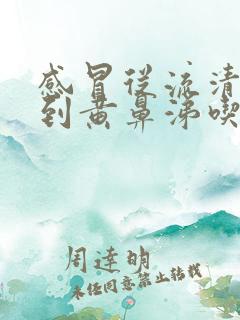 感冒从流清
到黄鼻涕喫
周達明
未经同意禁止转载